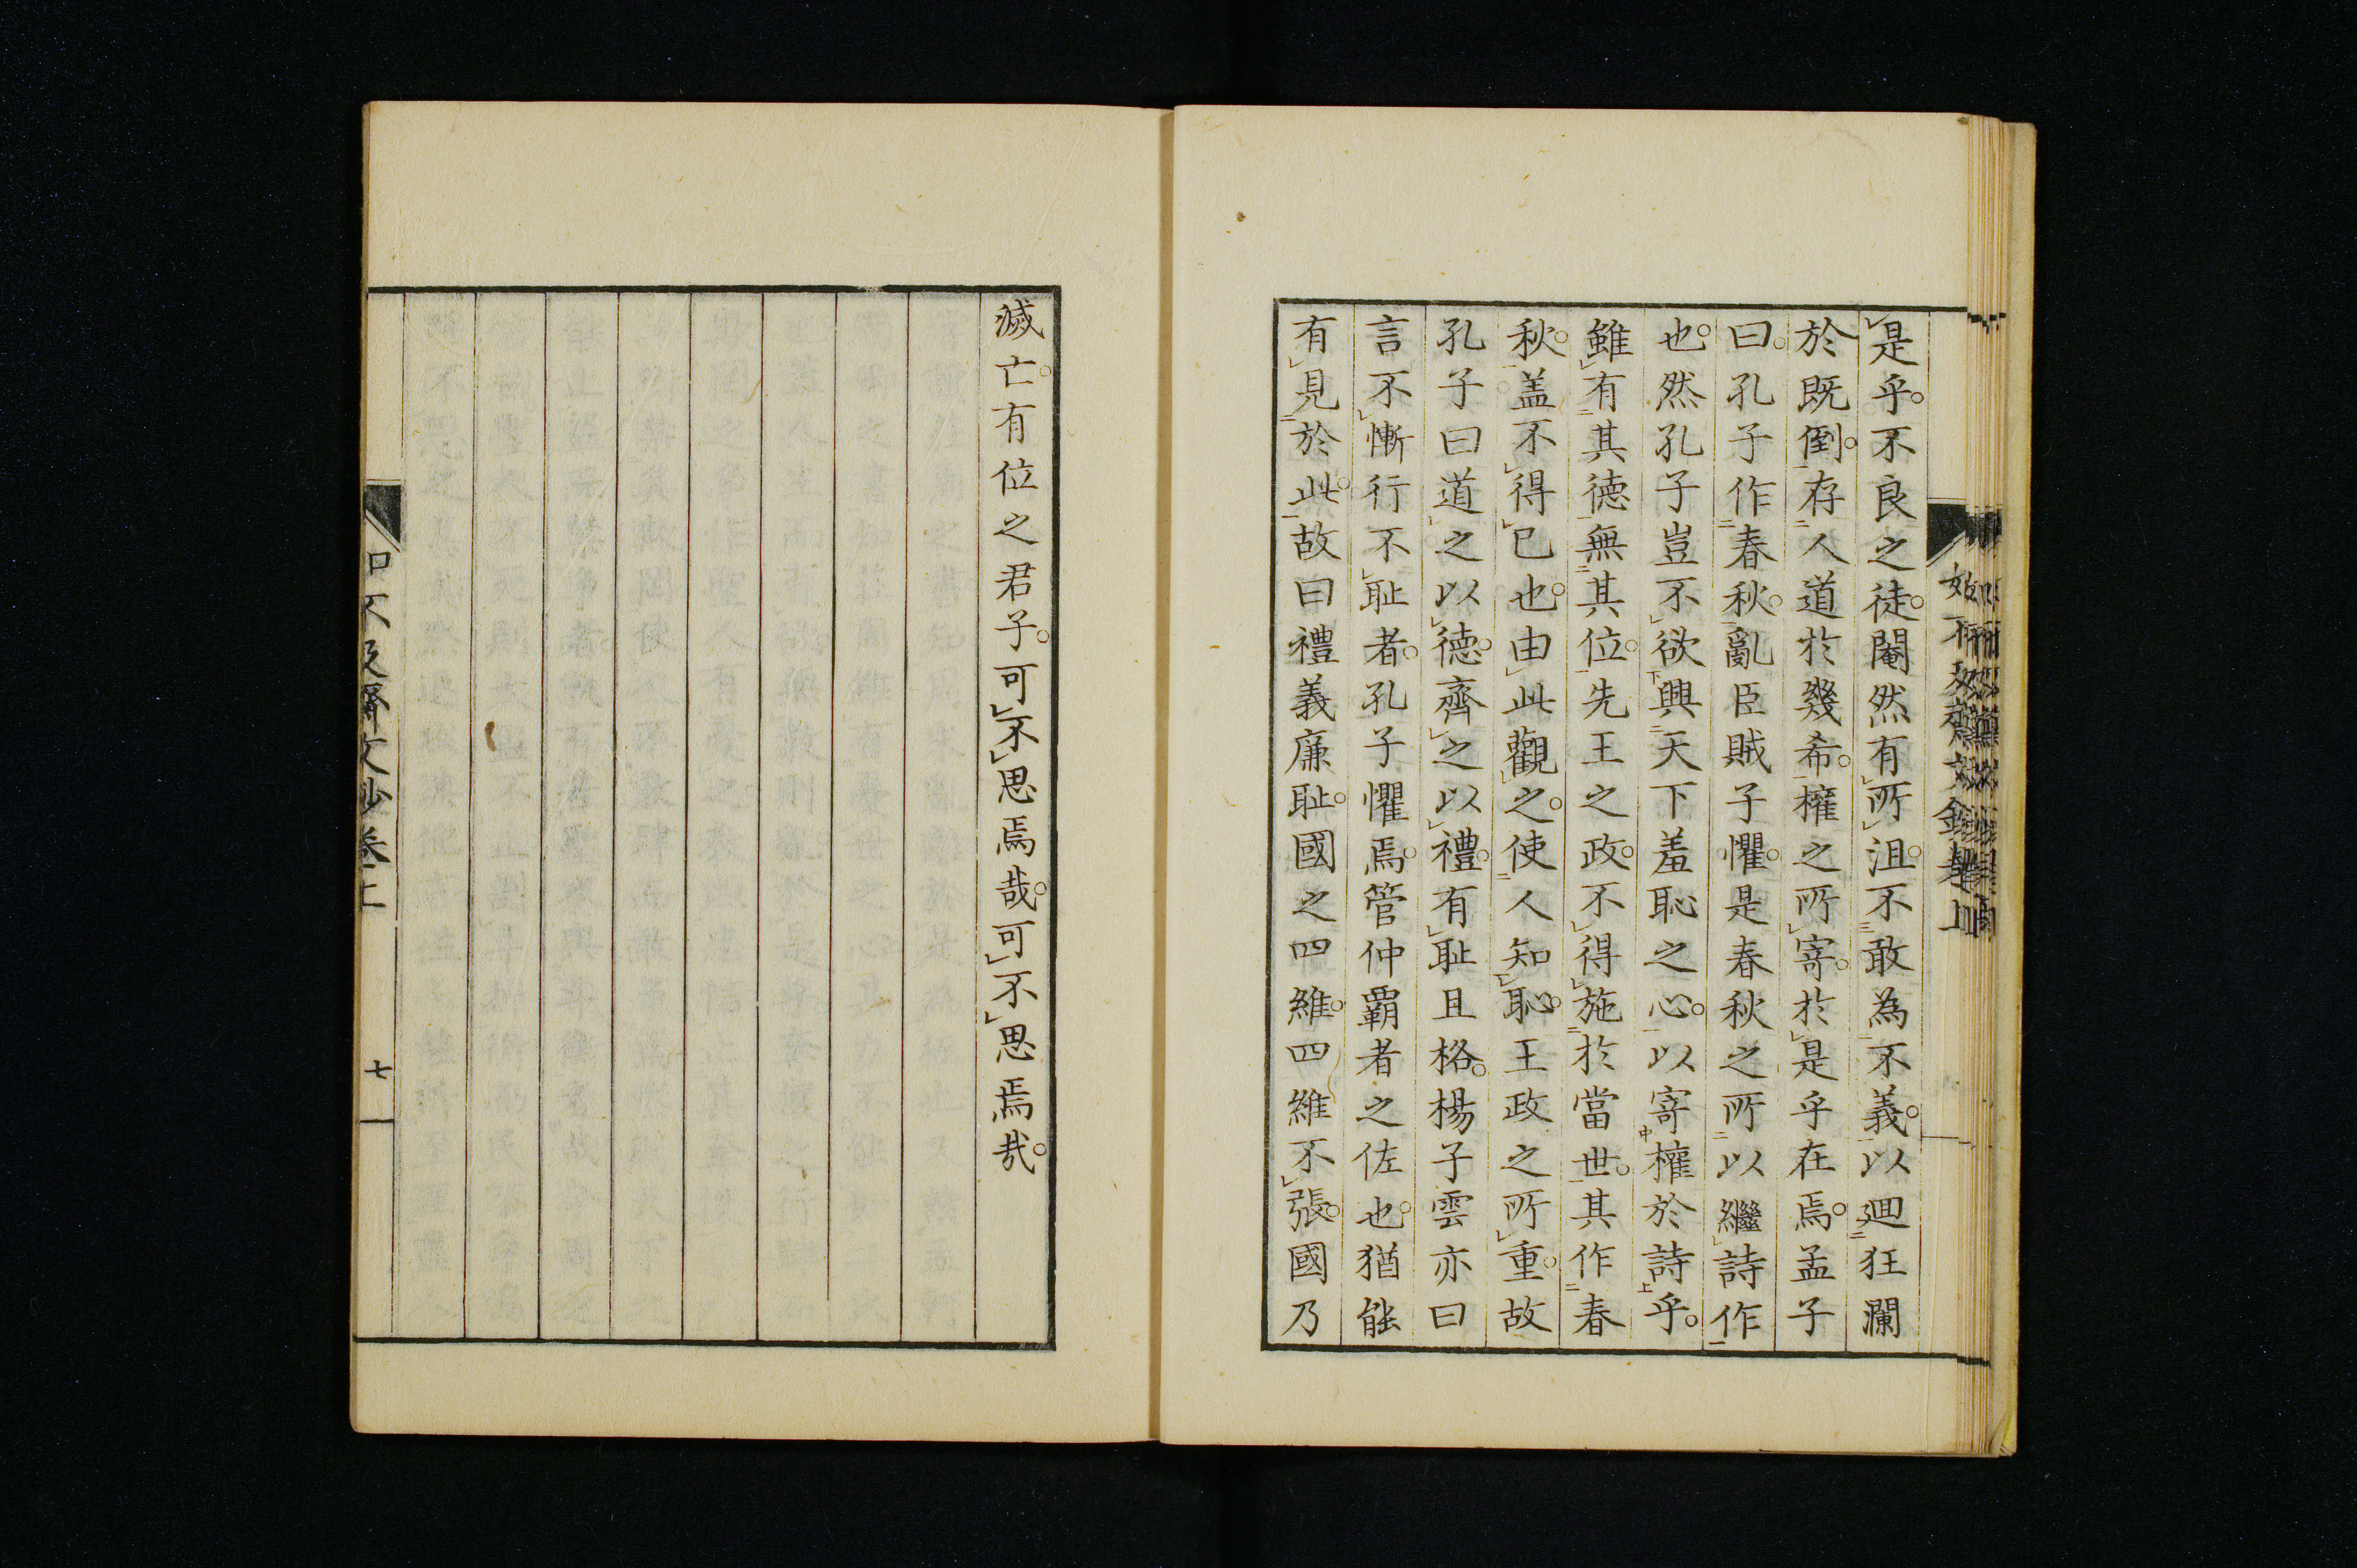 如不及齋文鈔卷上
是乎。不良之徒。閹然有所沮。不敢為不義。以廻狂瀾
於既倒。存人道於幾希。權之所寄。於是乎在焉。孟子
曰。孔子作春秋。亂臣賊子懼。是春秋之所以繼詩作
也。然孔子豈不欲興天下羞恥之心。以寄權於詩乎。
雖有其德無其位。先王之政。不得施於當世。其作春
秋。盖不得已也。由此觀之。使人知恥。王政之所重。故
孔子曰道之以德。齊之以禮。有耻且格。楊子雲亦曰
言不慚行不耻者。孔子懼焉。管仲覇者之佐也。猶能
有見於此。故曰禮義廉耻。國之四維。四維不張。國乃
滅亡。有位之君子。可不思焉哉。可不思焉哉。
如不及齋文鈔卷上
七